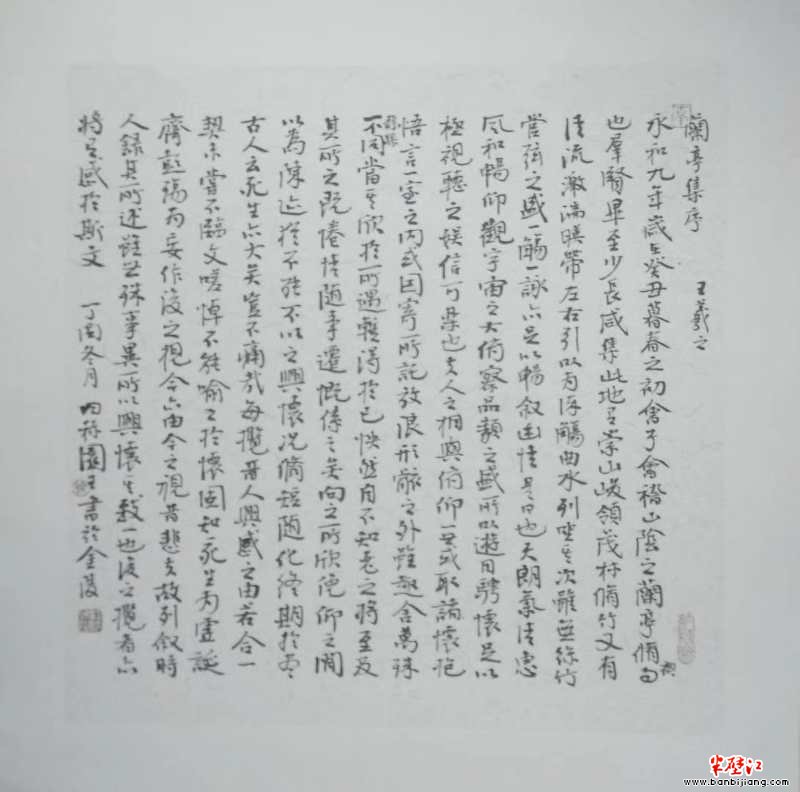 蘭亭集序 王羲之
永和九年歲在癸丑暮春之初會于會稽山陰之蘭亭脩禊事
也羣賢畢至少長咸集此地有崇山峻領茂林脩竹又有
清流激湍暎帶左右引以為流觴曲水列坐其次雖無絲竹
管弦之盛一觴一詠亦足以暢叙幽情是日也天朗氣清惠
風和暢仰觀宇宙之大俯察品類之盛所以遊目騁懷足以
極視聽之娛信可樂也夫人之相與俯仰一世或取諸懷抱
悟言一室之内或因寄所託放浪形骸之外雖趣舍萬殊
靜躁不同當其欣於所遇輒得於己怏然自不知老之將至及
其所之既倦情隨事遷慨係之矣向之所欣俛仰之間
以為陳迹猶不能不以之興懷况脩短隨化終期於盡
古人云死生亦大矣豈不痛哉每攬昔人興感之由若合一
契未嘗不臨文嗟悼不能喻之於懷固知死生為虛誕
齊彭殤為妄作後之視今亦由今之視昔悲夫故列叙時
人錄其所述雖世殊事異所以興懷其致一也後之攬者亦
將有感於斯文 丁酉冬月 園王書於金陵
半壁江
www.banbijiang.com